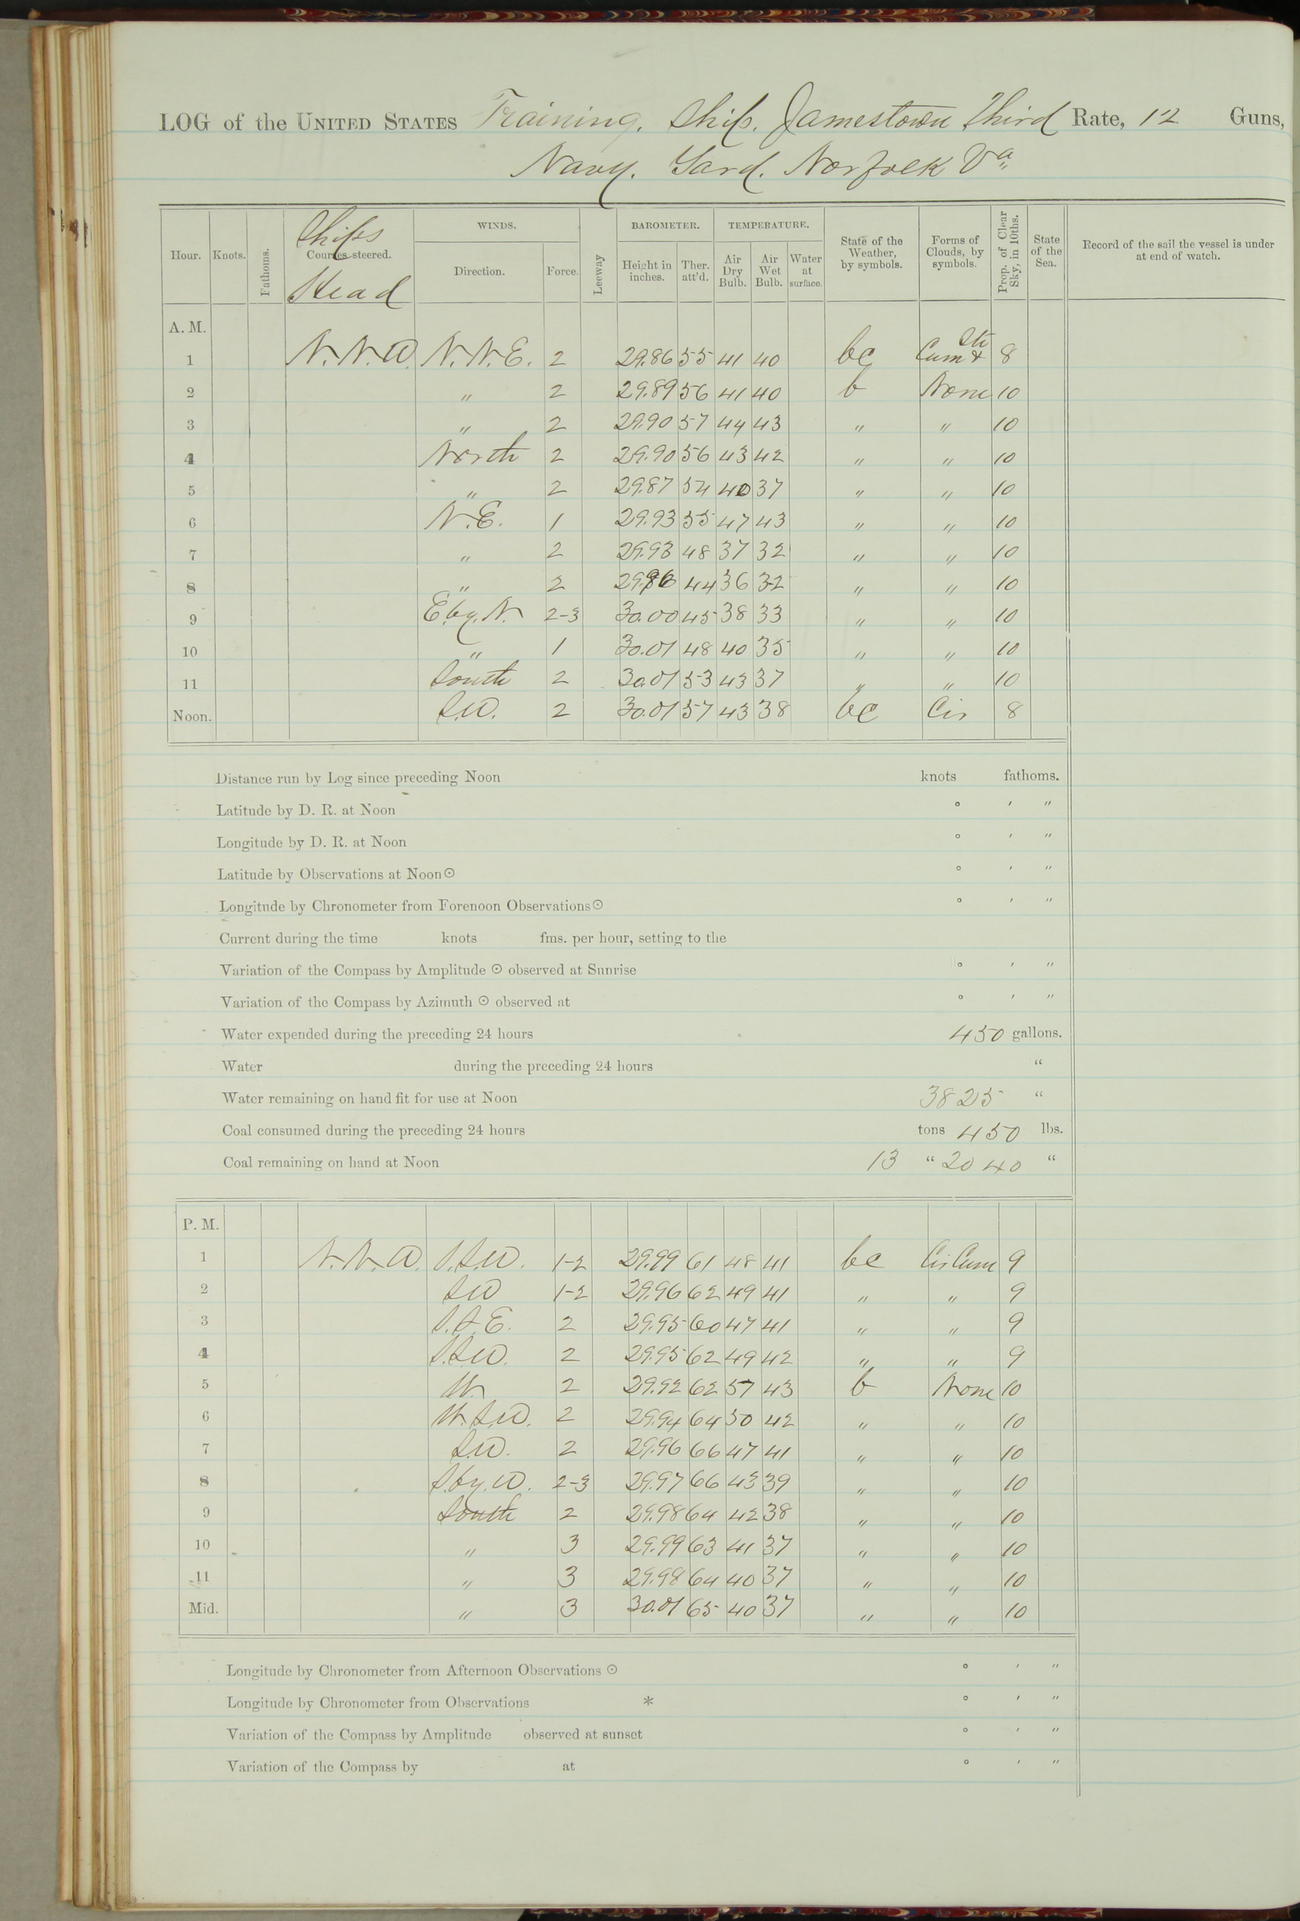 LOG of the UNITED STATES Training. Ship. Jamestown Third Rate, 12 Guns,
Navy. Yard. Norfolk Va
Hour. Knots. Fathoms. Ships Courses steered. Head WINDS. Direction. Force. Leeway BAROMETER. Height in inches. Ther. att'd. TEMPERATURE. Air Dry Bulb. Air Wet Bulb. Water at surface. State of the Weather, by symbols. Forms of Clouds, by symbols. Prop. of Clear Sky, in 10ths. State of the Sea. Record of the sail the vessel is under at end of watch.
A. M.
1 N.N.W. N.N.E. 2 29.86 55 41 40 bc Cum & Str 8
2 " 2 29.89 56 41 40 b None 10
3 " 2 29.90 57 44 43 " " 10
4 North 2 29.90 56 43 42 " " 10
5 " 2 29.87 54 40 37 " " 10
6 N.E. 1 29.93 55 47 43 " " 10
7 " 2 29.93 48 37 32 " " 10
8 " 2 29.96 44 36 32 " " 10
9 E.by.N. 2-3 30.00 45 38 33 " " 10
10 " 1 30.01 48 40 35 " " 10
11 South 2 30.01 53 43 37 " " 10
Noon. S.W. 2 30.01 57 43 38 bc Cir 8
Distance run by Log since preceding Noon knots fathoms.
Latitude by D. R. at Noon ° ′ ″
Longitude by D. R. at Noon ° ′ ″
Latitude by Observations at Noon☉ ° ′ ″
Longitude by Chronometer from Forenoon Observations☉ ° ′ ″
Current during the time knots fms. per hour, setting to the
Variation of the Compass by Amplitude ☉ observed at Sunrise ° ′ ″
Variation of the Compass by Azimuth ☉ observed at ° ′ ″
Water expended during the preceding 24 hours 450 gallons.
Water during the preceding 24 hours "
Water remaining on hand fit for use at Noon 3825 "
Coal consumed during the preceding 24 hours tons 450 lbs.
Coal remaining on hand at Noon 13 " 2040 "
P. M.
1 N.N.W. S.S.W. 1-2 29.99 61 48 41 bc Cir Cum 9
2 SW 1-2 29.96 62 49 41 " " 9
3 S.S.E. 2 29.95 60 47 41 " " 9
4 S.S.W. 2 29.95 62 49 42 " " 9
5 W. 2 29.92 62 57 43 b None 10
6 W.S.W. 2 29.94 64 50 42 " " 10
7 S.W. 2 29.96 66 47 41 " " 10
8 S.by.W. 2-3 29.97 66 43 39 " " 10
9 South 2 29.98 64 42 38 " " 10
10 " 3 29.99 63 41 37 " " 10
11 " 3 29.98 64 40 37 " " 10
Mid. " 3 30.01 65 40 37 " " 10
Longitude by Chronometer from Afternoon Observations ☉ ° ′ ″
Longitude by Chronometer from Observations * ° ′ ″
Variation of the Compass by Amplitude observed at sunset ° ′ ″
Variation of the Compass by at ° ′ ″